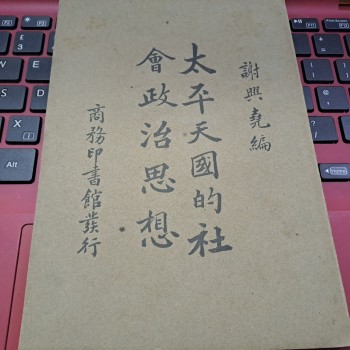 謝興堯編
太平天國的社
會政治思想
商務印書館發行
Alt